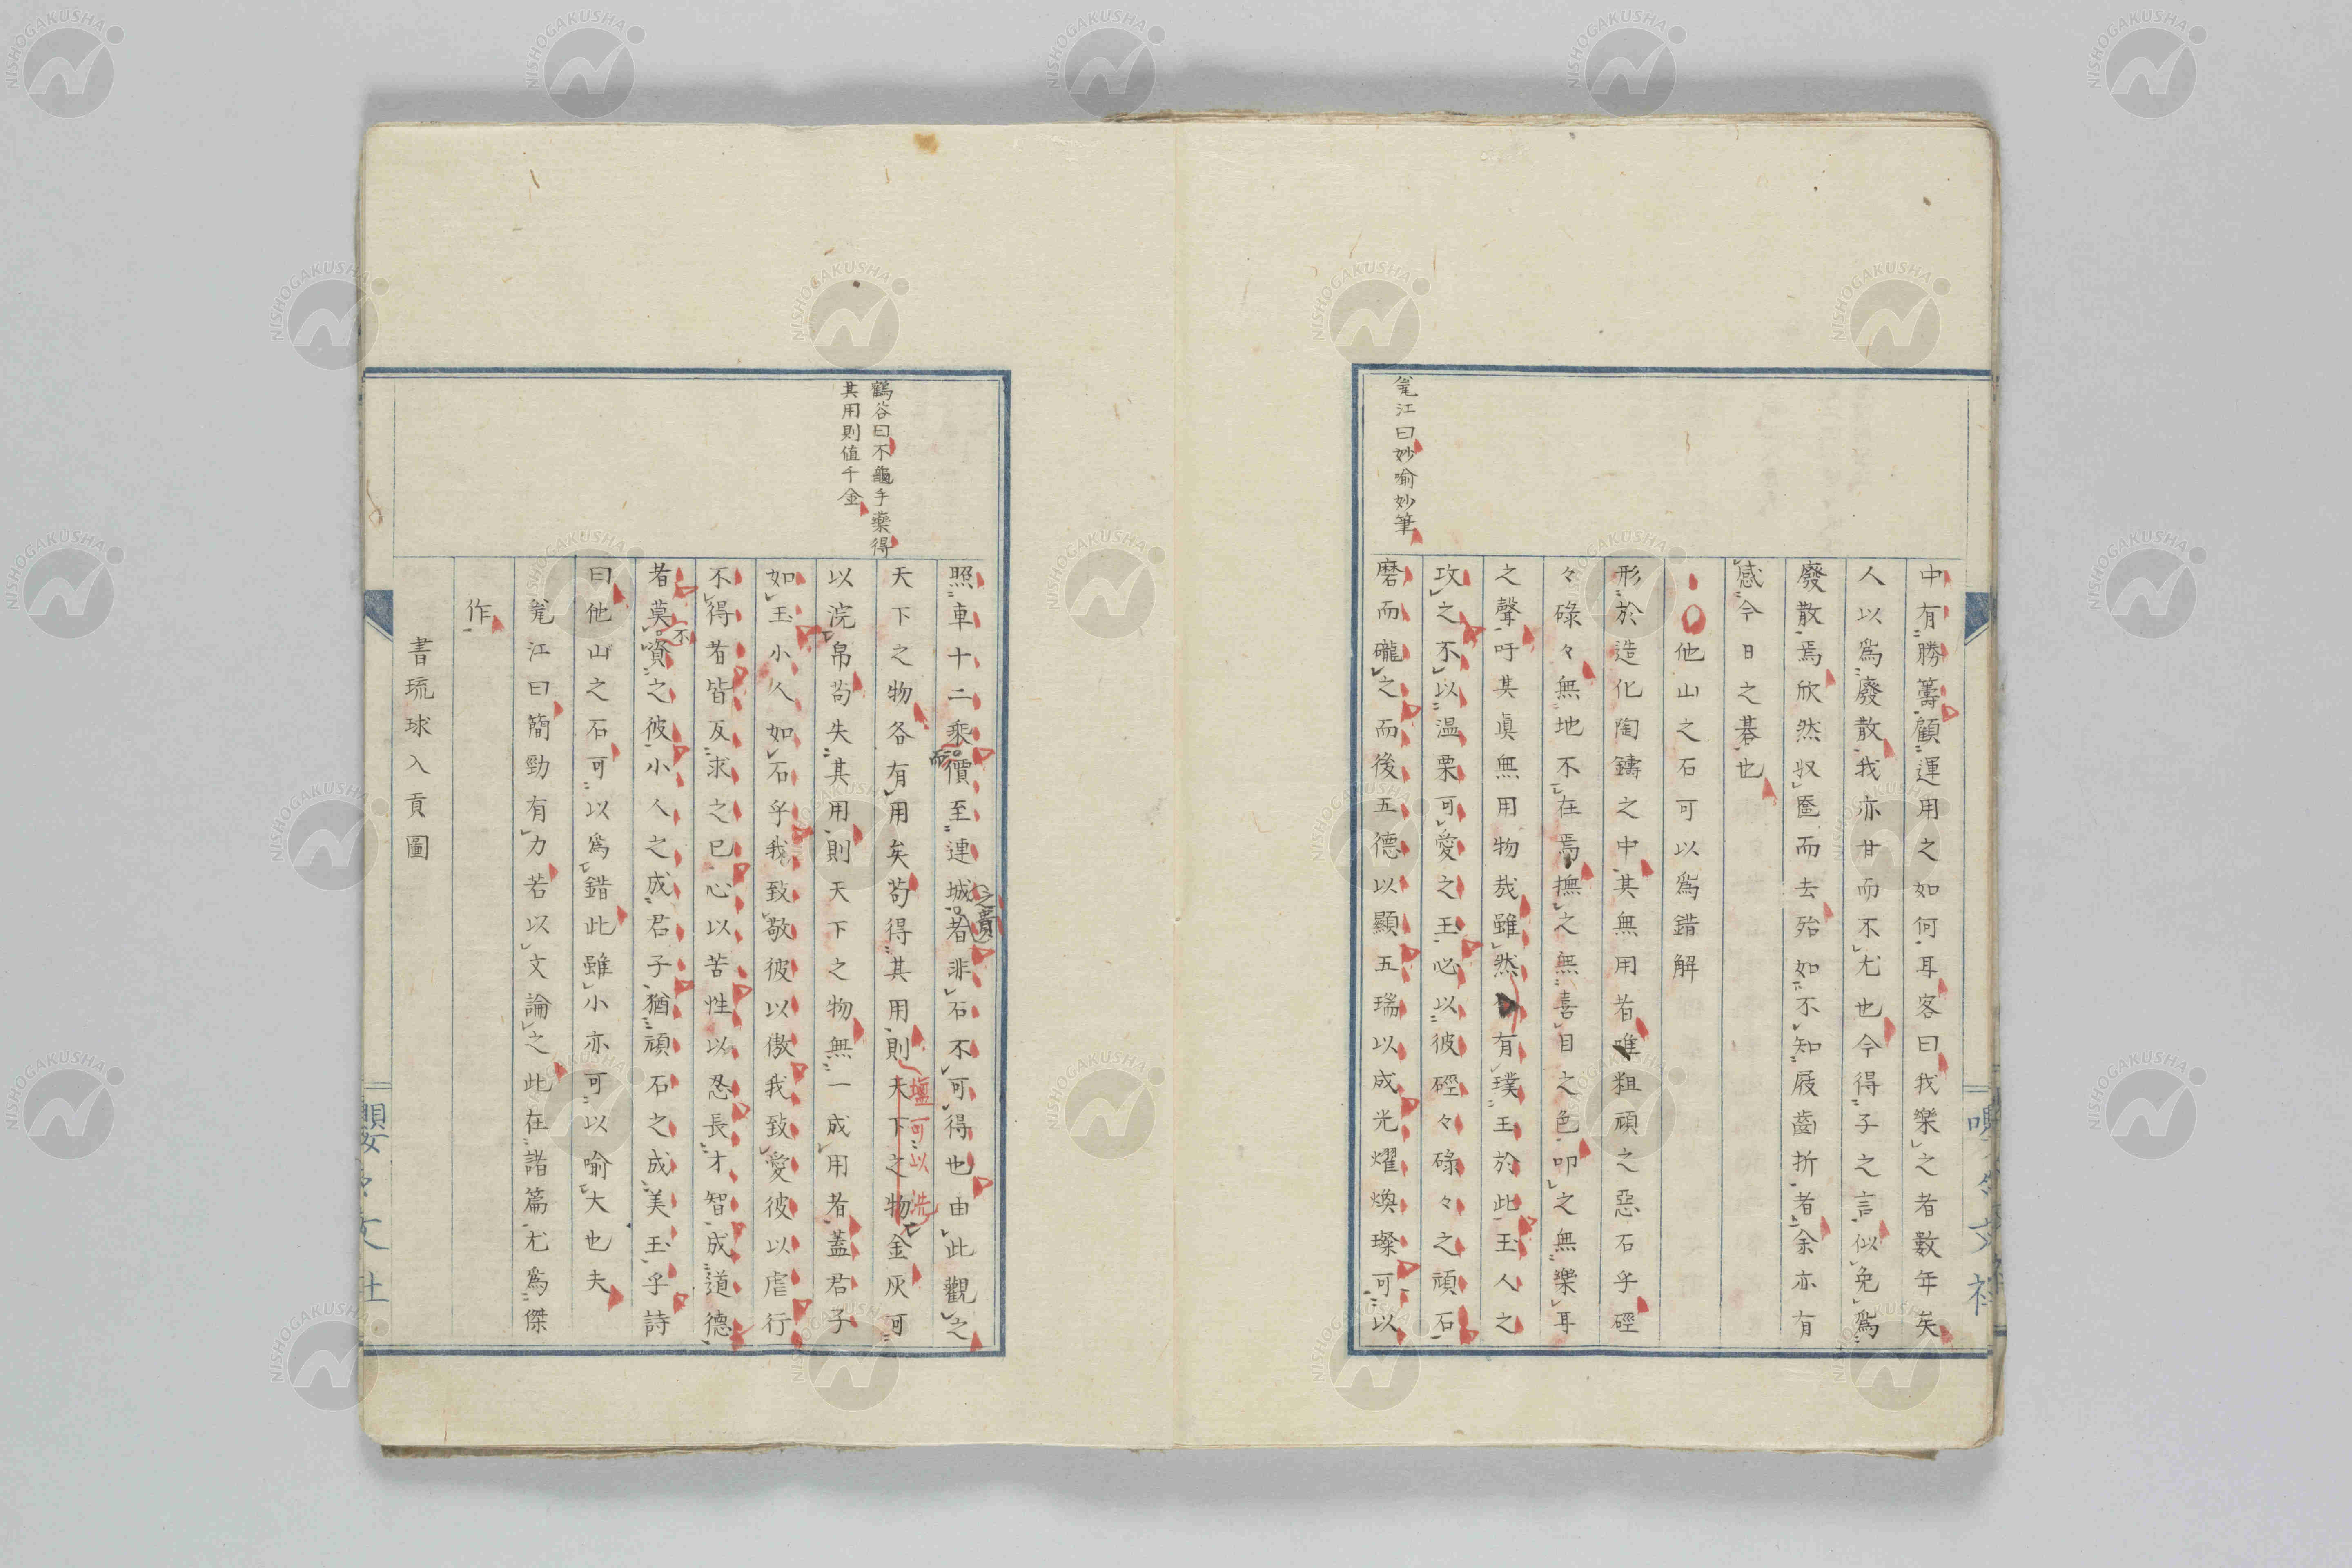 中有勝籌顧運用之如何耳客曰我樂之者數年矣
人以爲廢散我亦甘而不尤也今得子之言似免爲
廢散焉欣然収匳而去殆如不知屐齒折者余亦有
感今日之碁也
他山之石可以爲錯解
形於造化陶鑄之中其無用者唯粗頑之惡石乎硜
々碌々無地不在焉撫之無喜目之色叩之無樂耳
之聲吁其眞無用物哉雖然有璞玉於此玉人之
攻之不以温栗可愛之玉必以彼硜々碌々之頑石
磨而礲之而後五德以顯五瑞以成光燿煥璨可以
瓮江曰妙喻妙筆
照車十二乘而價至連城之貴者非石不可得也由此觀之
天下之物各有用矣苟得其用則天下之物金灰可
壚可以洗
以浣帛苟失其用則天下之物無一成用者蓋君子
如玉小人如石乎我致敬彼以傲我致愛彼以虐行
不得者皆反求之已心以苦性以忍長才智成道德
者莫不資之彼小人之成君子猶頑石之成美玉乎詩
曰他山之石可以爲錯此雖小亦可以喻大也夫
瓮江曰簡勁有力若以文論之此在諸篇尤爲傑
作
書琉球入貢圖
鶴谷曰不龜手藥得
其用則値千金
NISHOGAKUSHA